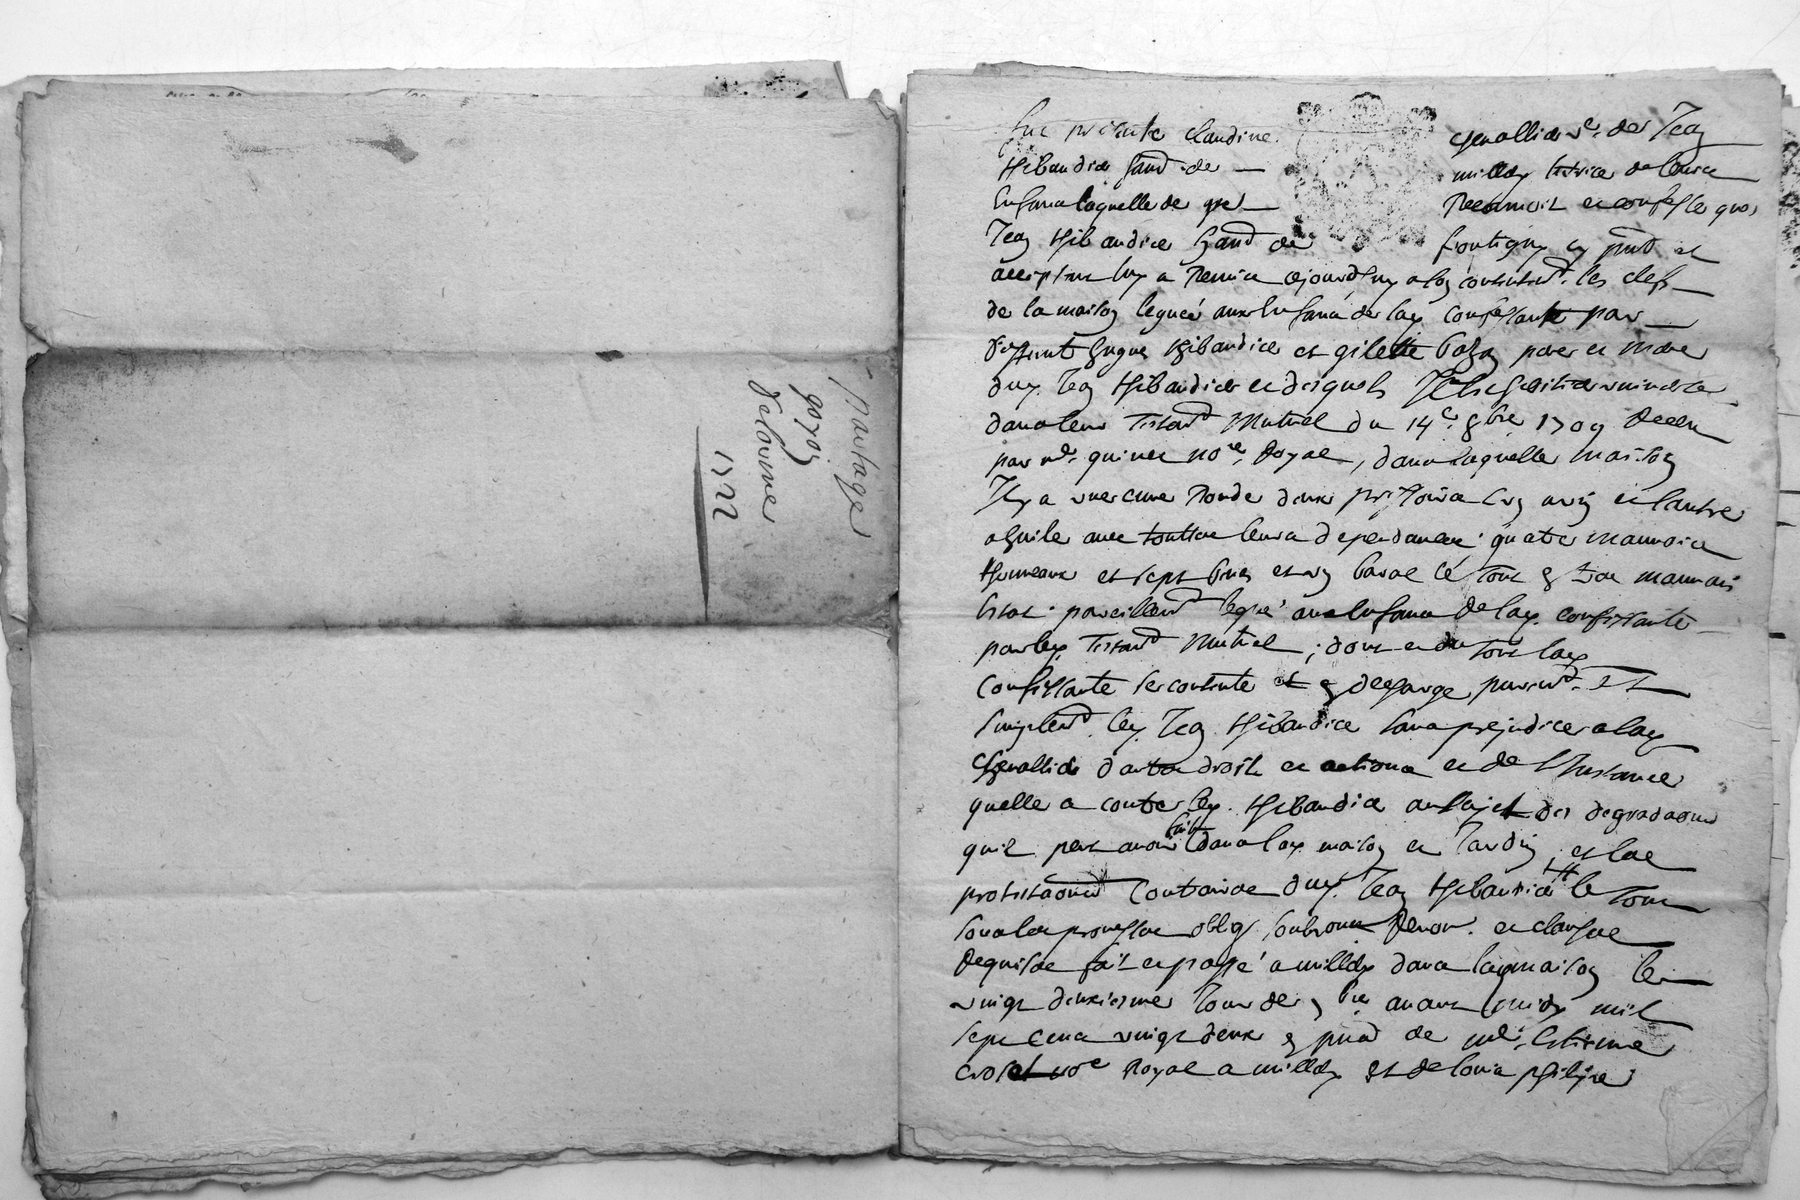 Partage
goyon
Falconnet
1722
Fut presente Claudine Chevallier ve. de Jean
Thibaudier hand. de milly tutrice de leurs
Enfans laquelle de gré Reconnoit et confesse que
Jean Thibaudier hand de frontigny cy pnt et
acceptant luy a Remis cejourdhuy a son contentemt. les clefs
de la maison leguée aux Enfans de lad. Confessante par
deffunt hugue Thibaudier et gilette pere et mere
dud. Jean Thibaudier et desquels
dans leur Testamt Mutuel du 14e. 8bre. 1709 Receu
par me. quinet nore. Royal, dans laquelle maison
Il y a une cuve Ronde deux pressoirs Lun a vin et lautre
a huile avec touttes leurs dependances quatre mauvais
thonneaux et sept bries et un baral le tout en tres mauvais
Estat. pareillemt legué aux Enfans de lad. confessante
par led. Testamt Mutuel ; dont et du tout lad.
Confessante se contente et en decharge puremt. Et
Simplemt. led. Jean Thibaudier sans prejudice a lad.
Chevallier dautres droits et actions et de l'Instance
quelle a contre led. Thibaudier au sujet des degradaons
quil peut avoir fait dans lad. maison et Jardin, et les
protestaons Contraires dud. Jean Thibaudier le tout
sous les promesses oblig. soubmon Renon. et clauses
Requises fait et passé a milly dans lad maison le
vingt deuxiesme Jour de 9bre. avant midy mil
sept cens vingt deux en pnce de me. Estienne
Crolet nore Royal a milly et de louis philipe